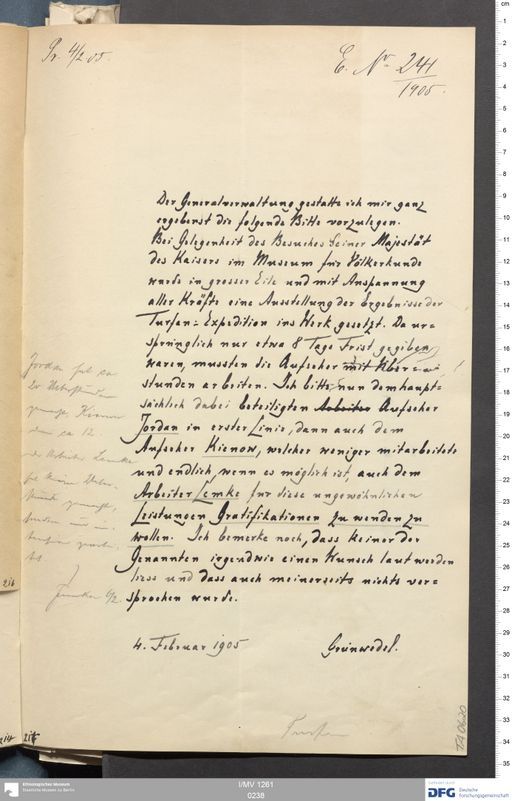 Pr. 4/2 05.
E. No 241
1905.
Der Generalverwaltung gestatte ich mir ganz
ergebenst die folgende Bitte vorzulegen.
Bei Gelegenheit des Besuches Seiner Majestät
des Kaisers im Museum für Völkerkunde
wurde in grosser Eile und mit Anspannung
aller Kräfte eine Ausstellung der Ergebnisse der
Turfan-Expedition ins Werk gesetzt. Da ur=
sprünglich nur etwa 8 Tage Frist gegeben
waren, mussten die Aufseher mit Über=
stunden arbeiten. Ich bitte, nun dem haupt=
sächlich dabei beteiligten Arbeiter Aufseher
Jordan in erster Linie, dann auch dem
Aufseher Kienow, welcher weniger mitarbeitete
und endlich, wenn es möglich ist, auch dem
Arbeiter Lemke für diese ungewöhnlichen
Leistungen Gratifikationen zu wenden zu
wollen. Ich bemerke noch, dass keiner der
Genannten irgendwie einen Wunsch laut werden
liess und dass auch meinerseits nichts ver=
sprochen wurde.
4. Februar 1905
Grünwedel.
Jordan hat ca
20 Überstunden
gemacht, Kienow
ca 12.
Arbeiter Lemke
6/2.
Turfan
TA 0620
216
214
216
Ethnologisches Museum
Staatliche Museen zu Berlin
I/MV 1261
0238
DFG
Deutsche
Forschungsgemeinschaft
cm
1
2
3
4
5
6
7
8
9
10
11
12
13
14
15
16
17
18
19
20
21
22
23
24
25
26
27
28
29
30
31
32
33
34
35